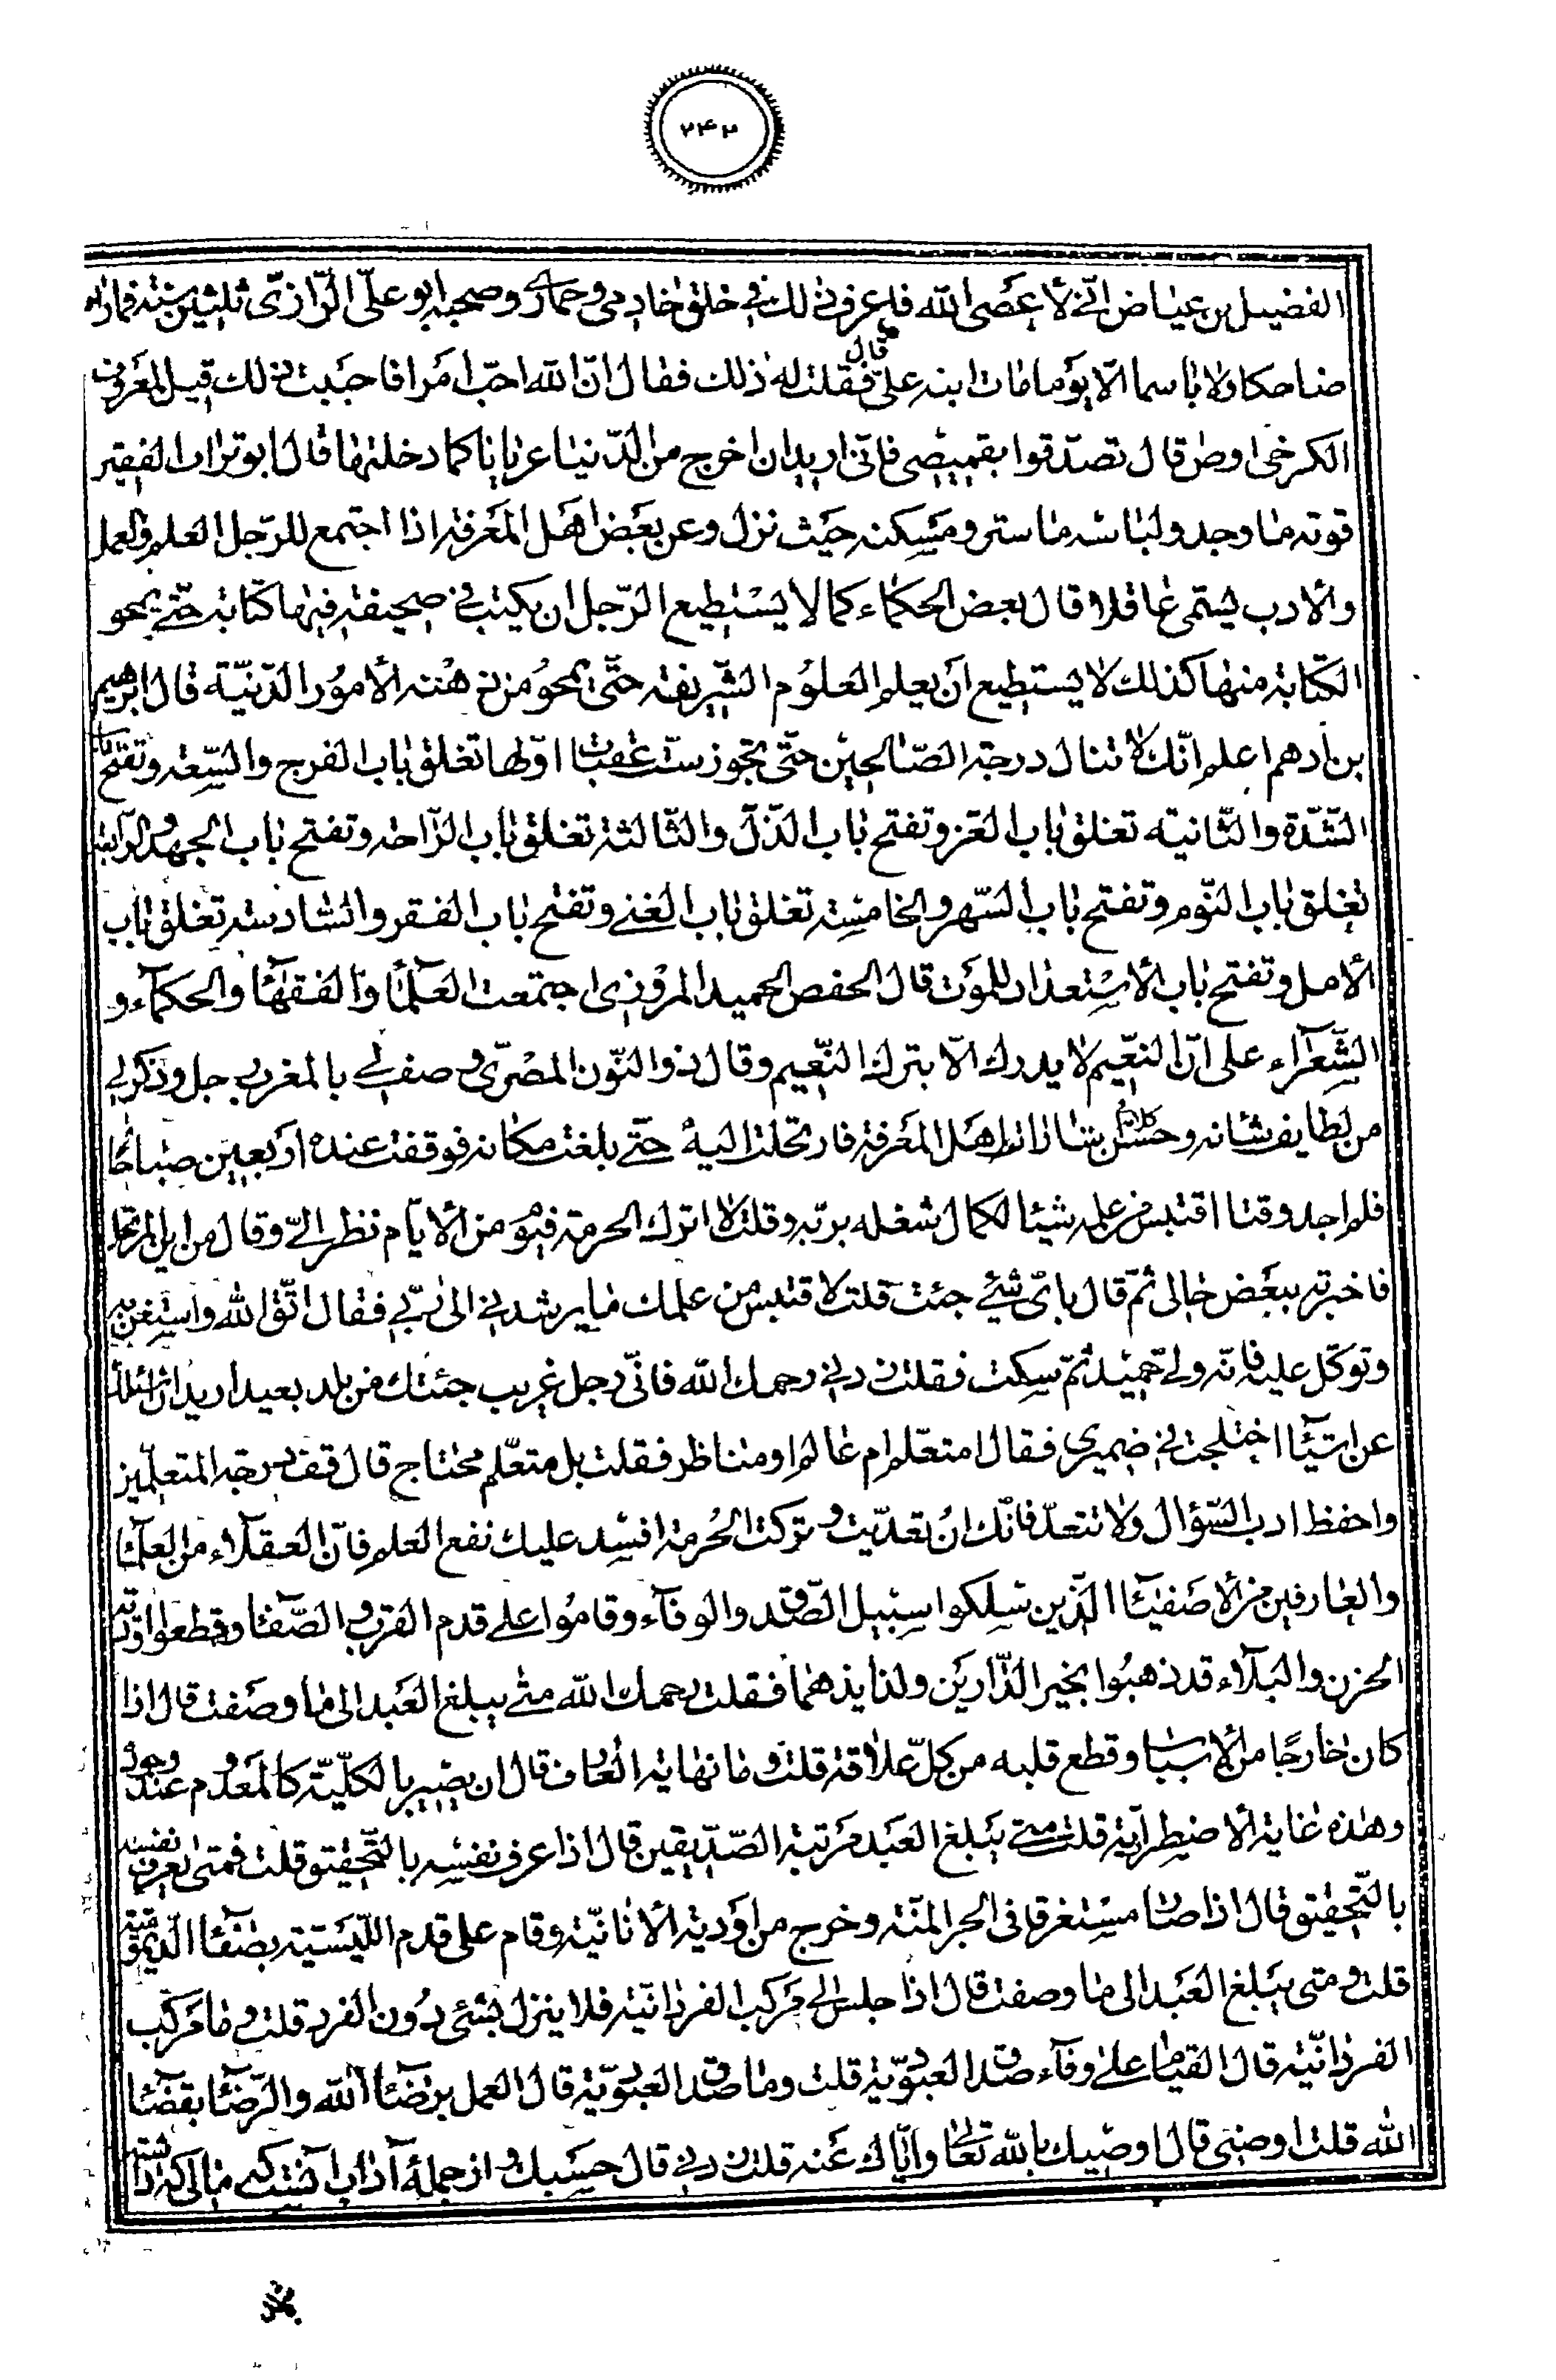 ۷۴۲
الفضیل بن عیاض انّی لأعصی الله فاعرف ذلك فی خلق خادمی وحماری وصحبه ابو علیّ الرّازیّ ثلثین سنة فما راه
ضاحکا ولا باسما الّا یوما مات ابنه علیّ قال فقلت له ذلك فقال انّ الله احبّ امرا فاحببت ذلك قیل لمعروف
الکرخی اوص قال تصدّقوا بقمیصی فانّی ارید ان اخرج من الدّنیا عریانا کما دخلتها قال ابو تراب الفقیر
قوته ما وجد ولباسه ما ستر ومسکنه حیث نزل وعن بعض اهل المعرفة اذا اجتمع للرّجل العلم والعمل
والادب یسمّی عاقلا قال بعض الحکماء کما لا یستطیع الرّجل ان یکتب فی صحیفة فیها کتابة حتّی یمحو
الکتابة منها کذلك لا یستطیع ان یعلم العلوم الشّریفة حتّی یمحو من ذهنه الأمور الدّنیّة قال ابرهیم
بن ادهم اعلم انّك لا تنال درجة الصّالحین حتّی تجوز ستّ عقبات اوّلها تغلق باب الفرج والسّعة وتفتح باب
الشّدّة والثّانیة تغلق باب العزّ وتفتح باب الذّلّ والثّالثة تغلق باب الرّاحة وتفتح باب الجهد والرّابعة
تغلق باب النّوم وتفتح باب السّهر والخامسة تغلق باب الغنی وتفتح باب الفقر والسّادسة تغلق باب
الأمل وتفتح باب الأستعداد للموت قال الحفص الحمید المروزی اجتمعت العلمآء والفقهآء والحکمآء و
الشّعرآء علی انّ النّعیم لا یدرك الّا بترك النّعیم وقال ذو النّون المصریّ وصف لی بالمغرب رجل وذکر لی
من لطایف شانه وحسن کلامه باشارات اهل المعرفة فارتحلت الیه حتّی بلغت مکانه فوقفت عنده اربعین صباحا
فلم اجد وقتا اقتبس من علمه شیئا لکمال شغله بربّه وقلت لا اترك الحرمة فیوم من الأیّام نظر الیّ وقال من این المرتحل
فاخبرته ببعض حالی ثمّ قال بایّ شیء جئت قلت لاقتبس من علمك ما یرشدنی الی ربّی فقال اتّق الله واستغن به
وتوکّل علیه فانّه ولیّ حمید ثمّ سکت فقلت زدنی رحمك الله فانّی رجل غریب جئتك من بلد بعید ارید ان اسئلك
عن اشیآء اختلجت فی ضمیری فقال امتعلّم ام عالم او مناظر فقلت بل متعلّم محتاج قال قف درجة المتعلّمین
واحفظ ادب السّؤال ولا تتعدّ فانّك ان تعدّیت وترکت الحُرمة افسد علیك نفع العلم فانّ العقلآء من العلمآء
والعارفین من الأصفیآء الّذین سلکوا سبیل الصّدق والوفآء وقاموا علی قدم القرب والصّفآء وقطعوا اودیة
الحزن والبلآء قد ذهبُوا بخیر الدّارین ولذایذهما فقلت رحمك الله متی یبلغ العبد الی ما وصفت قال اذا
کان خارجًا من الأسباب وقطع قلبه من کلّ علاقة قلت وما نهایة العارف قال ان یصیر بالکلّیّة کالمعدوم عند وجوده
وهذه غایة الأضطراریة قلت متی یبلغ العبد مرتبة الصّدّیقین قال اذا عرف نفسه بالتّحقیق قلت فمتی یعرف نفسه
بالتّحقیق قال اذا صار مستغرقا فی البحر المنّة وخرج من اودیة الأنانیّة وقام علی قدم اللّیسیّة بصفآء الدّیمقیّة
قلت ومتی یبلغ العبد الی ما وصفت قال اذا جلس الی مرکب الفردانیّة فلا ینزل بشیء دون الفرد قلت وما مرکب
الفردانیّة قال القیام علی وفآء صدق العبودیّة قلت وما صدق العبودیّة قال العمل برضآء الله والرّضآء بقضآء
الله قلت اوصنی قال اوصیك بالله تعالی وایّاك عنه قلت زدنی قال حسبك و از جمله آداب آنستکه مالی که داشته